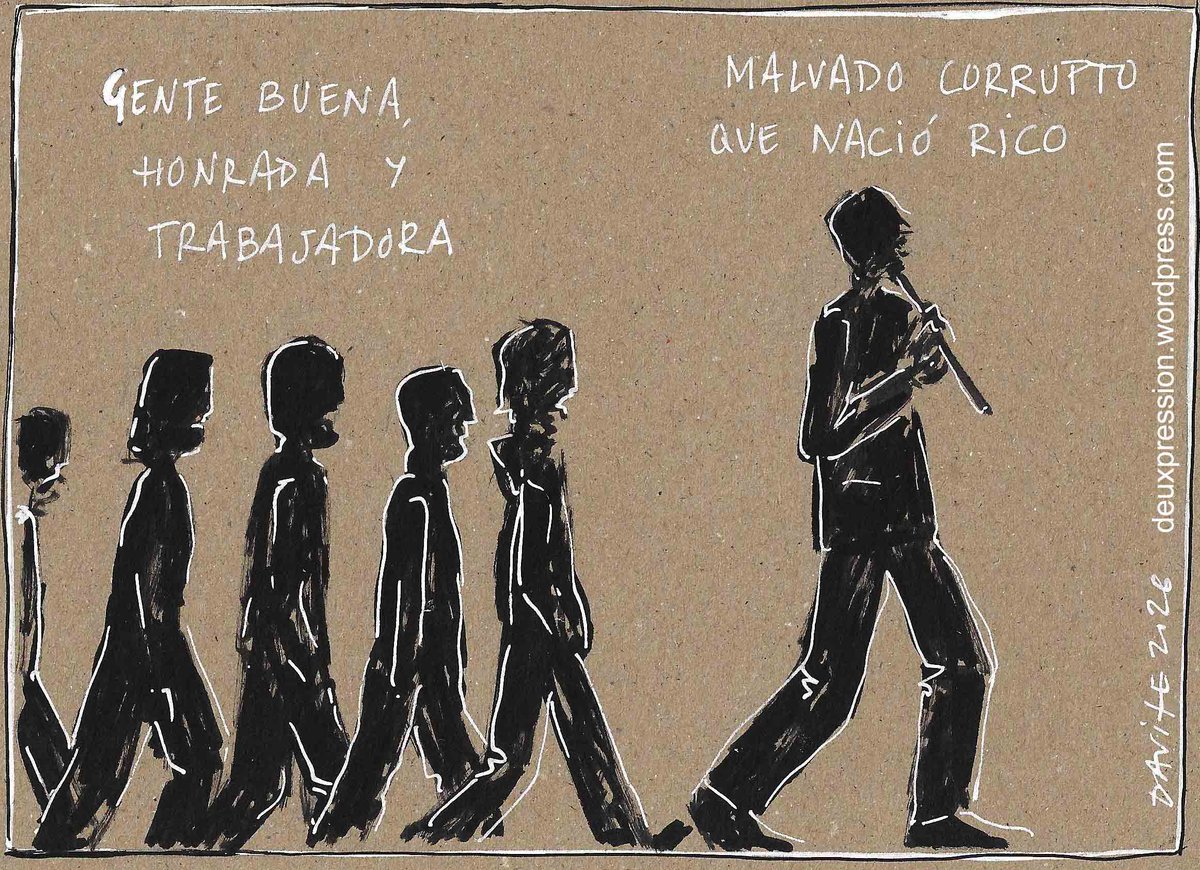 GENTE BUENA,
HONRADA Y
TRABAJADORA
MALVADO CORRUPTO
QUE NACIÓ RICO
deuxpression.wordpress.com